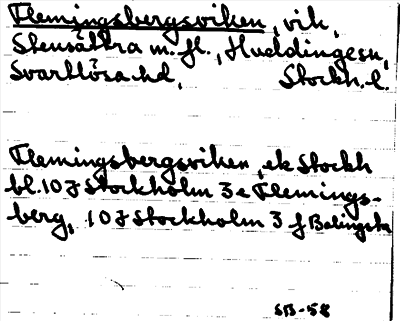 Flemingsbergsviken, vik,
Stensättra m.fl., Huddinge sn,
Svartlösa hd, Stockh. l.
Flemingsbergsviken, ek Stockh
bl. 10 J Stockholm 3 e Flemings-
berg, 10 J Stockholm 3 f Balingsta
SB-58